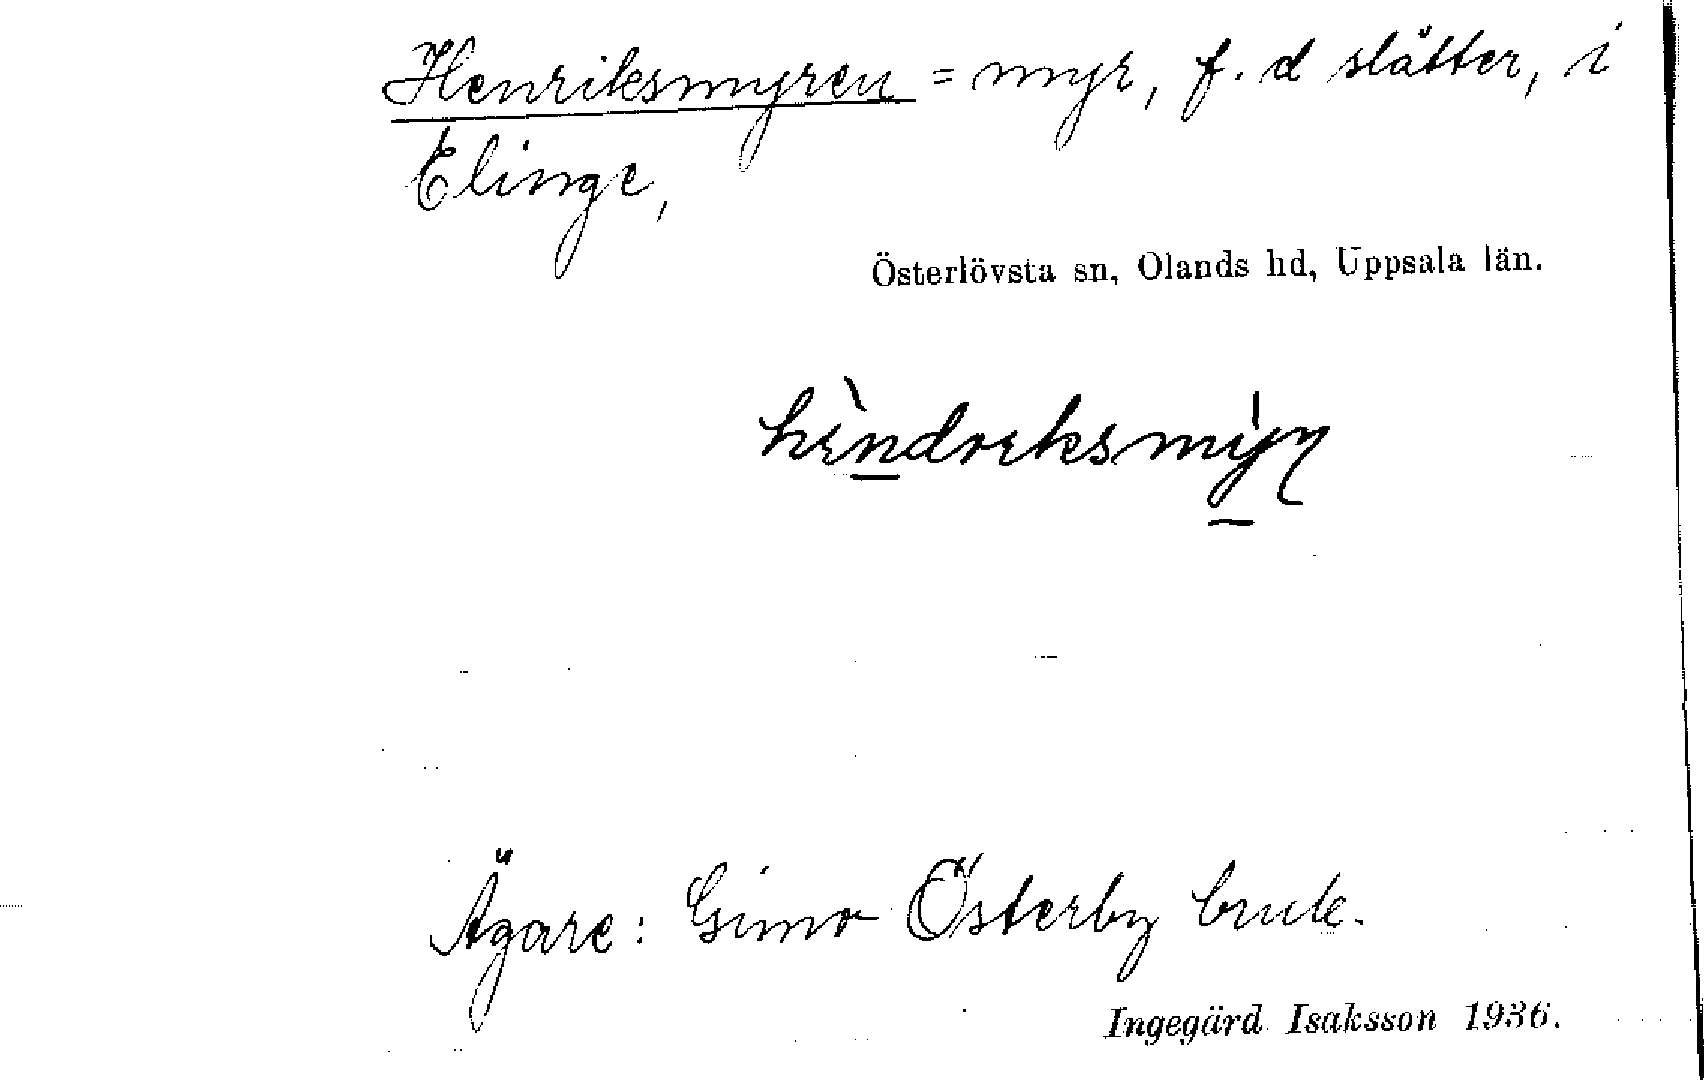 Henriksmyren = myr, f. d slåtter, i
Elinge,
Österlövsta sn, Olands hd, Uppsala län.
Ägare: Gimo Österby bruk.
Ingegärd Isaksson 1936.